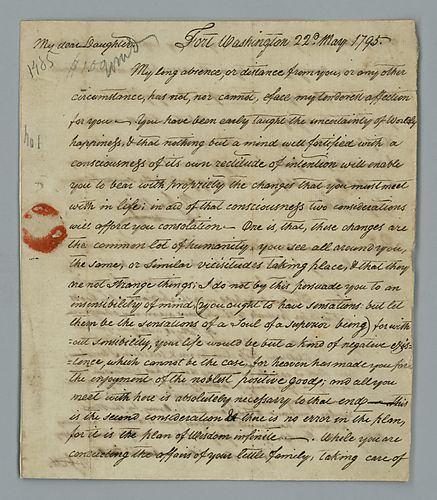 My dear Daughters
Fort Washington 22d May 1795.
1795
My long absence, or distance from you, or any other
circumstance, has not, nor cannot, efface my tenderest affection
for you — You have been early taught the uncertainty of Worldly
happiness, & that nothing but a mind well fortified with a
consciousness of its own rectitude of intention will enable
you to bear with propriety the changes that you must meet
with in life; in aid of that consciousness two considerations
will afford you consolation — One is, that, those changes are
the common lot of humanity, you see all around you,
the same, or similar vicisitudes taking place, & that they
are not strange things; I do not by this persuade you to an
insensibility of mind, (you ought to have sensations but let
them be the sensations of a Soul of a superior being) for with
=out sensibility, your life would be but a kind of negative exis
=tence, which cannot be the case, for heaven has made you for
the enjoyment of the noblest positive goods; and all you
meet with here is absolutely necessary to that end — this
is the second consideration & there is no error in the plan,
for it is the plan of Wisdom infinite — . While you are
conducting the affairs of your little family, taking care of